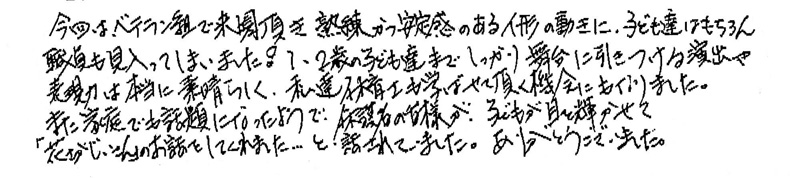 今回はベテラン組で来園頂き 熟練かつ安定感のある人形の動きに、子ども達はもちろん
職員も見入ってしまいました!! 1、2歳の子ども達まで しっかり舞台に引きつける演出や
表現力は本当に素晴らしく、私達保育士も学ばせて頂く機会にもなりました。
また家庭でも話題になったようで、保護者の皆様が、子どもが目を輝かせて
「花さかじいさん」のお話をしてくれました…と話されていました。ありがとうございました。